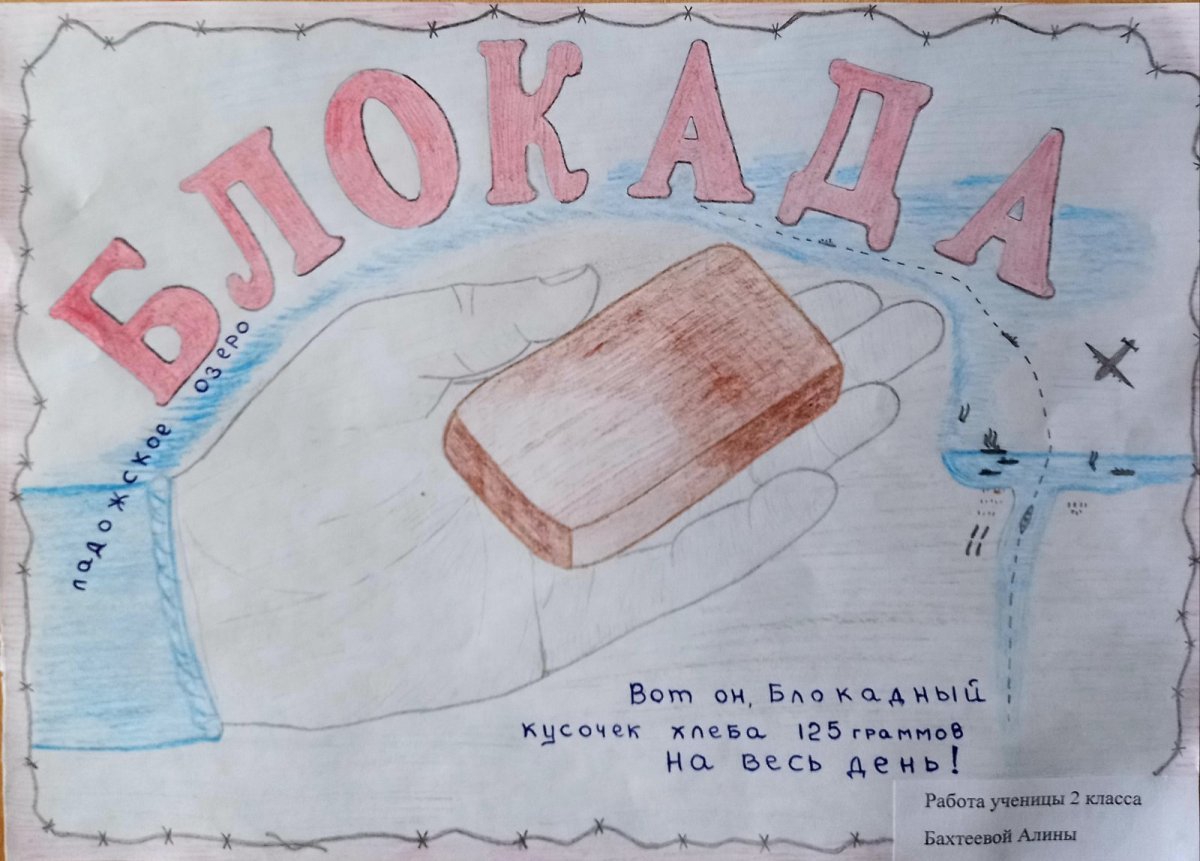 БЛОКАДА
ладожское озеро
Вот он, Блокадный
кусочек хлеба 125 граммов
На весь день!
Работа ученицы 2 класса
Бахтеевой Алины